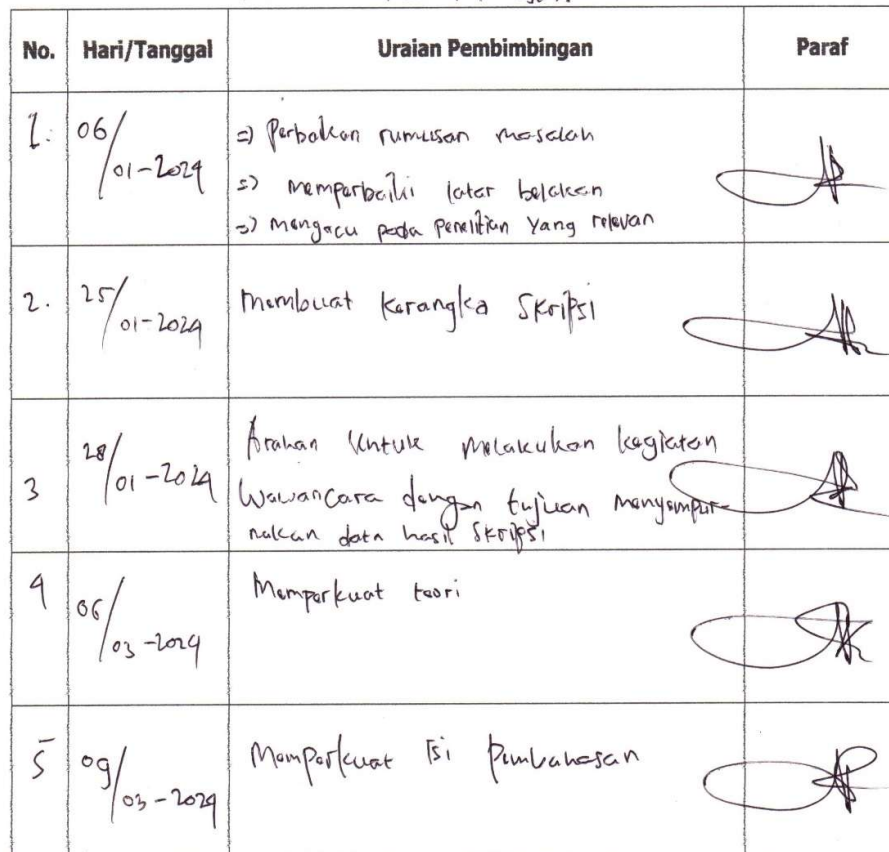 No. Hari/Tanggal Uraian Pembimbingan Paraf
1. 06/01-2024 => Perbaikan rumusan masalah
=> memperbaiki latar belakan
=> mengacu pada penelitian yang relevan
2. 25/01-2024 Membuat Kerangka Skripsi
3 28/01-2024 Arahan Untuk Melakukan kegiatan
Wawancara dengan tujuan menyempur-
nakan data hasil Skripsi
4 06/03-2024 Memperkuat teori
5 09/03-2024 Memperkuat Isi Pembahasan